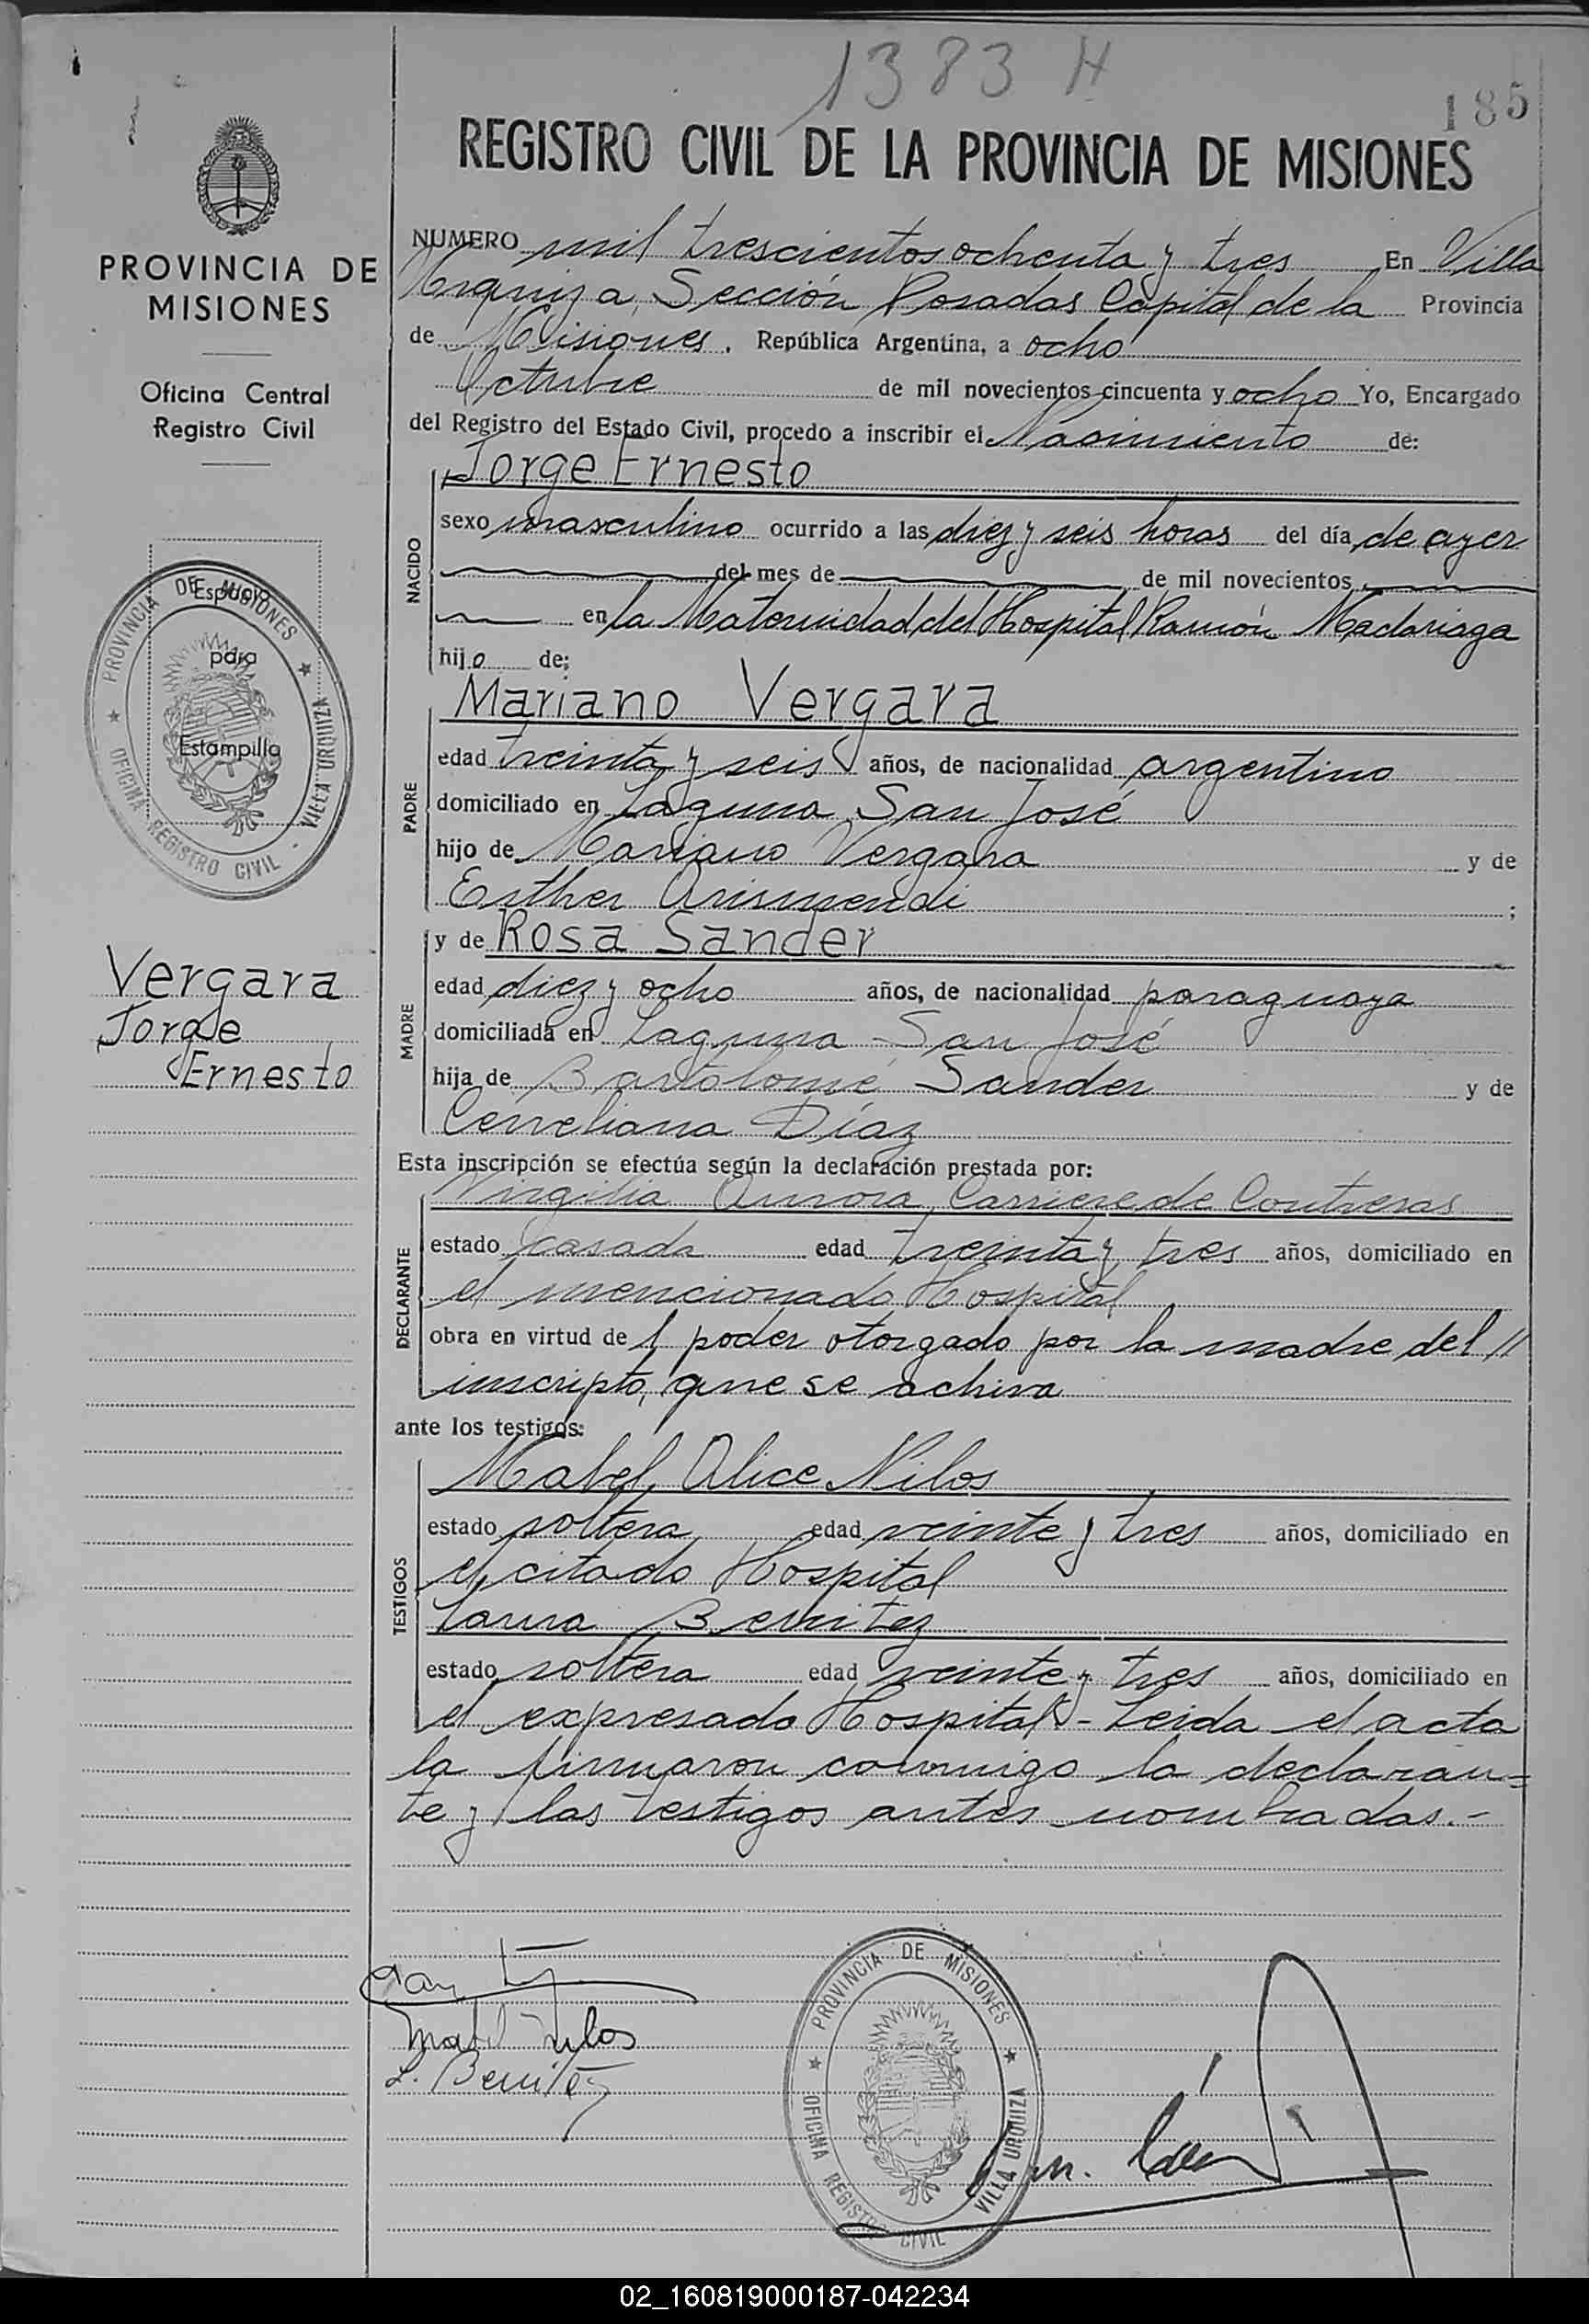 1383 H
185
REGISTRO CIVIL DE LA PROVINCIA DE MISIONES
PROVINCIA DE
MISIONES
Oficina Central
Registro Civil
Espacio
para
Estampilla
PROVINCIA DE MISIONES
OFICINA REGISTRO CIVIL - VILLA URQUIZA
Vergara
Jorge
Ernesto
NUMERO mil trescientos ochenta y tres En Villa
Urquiza, Sección Posadas Capital de la Provincia
de Misiones. República Argentina, a ocho
Octubre de mil novecientos cincuenta y ocho Yo, Encargado
del Registro del Estado Civil, procedo a inscribir el Nacimiento de:
NACIDO
Jorge Ernesto
sexo masculino ocurrido a las diez y seis horas del día de ayer
del mes de de mil novecientos
en la Maternidad del Hospital Ramón Madariaga
hijo de;
PADRE
Mariano Vergara
edad treinta y seis años, de nacionalidad argentino
domiciliado en Laguna San José
hijo de Mariano Vergara y de
Esther Arismendi ;
MADRE
y de Rosa Sander
edad diez y ocho años, de nacionalidad paraguaya
domiciliada en Laguna San José
hija de Bartolomé Sander y de
Cerveliana Díaz
Esta inscripción se efectúa según la declaración prestada por:
DECLARANTE
Virgilia Aurora Carriere de Contreras
estado casada edad treinta y tres años, domiciliado en
el mencionado Hospital
obra en virtud de l poder otorgado por la madre del //
inscripto, que se achiva
ante los testigos:
TESTIGOS
Mabel Alice Nilos
estado soltera edad veinte y tres años, domiciliado en
el citado Hospital
Laura Benitez
estado soltera edad veinte y tres años, domiciliado en
el expresado Hospital - Leida el acta
la firmaron conmigo la declaran=
te y las testigos antes nombradas.-
Mabel Nilos
L. Benitez
PROVINCIA DE MISIONES
OFICINA REGISTRO CIVIL VILLA URQUIZA
02_160819000187-042234